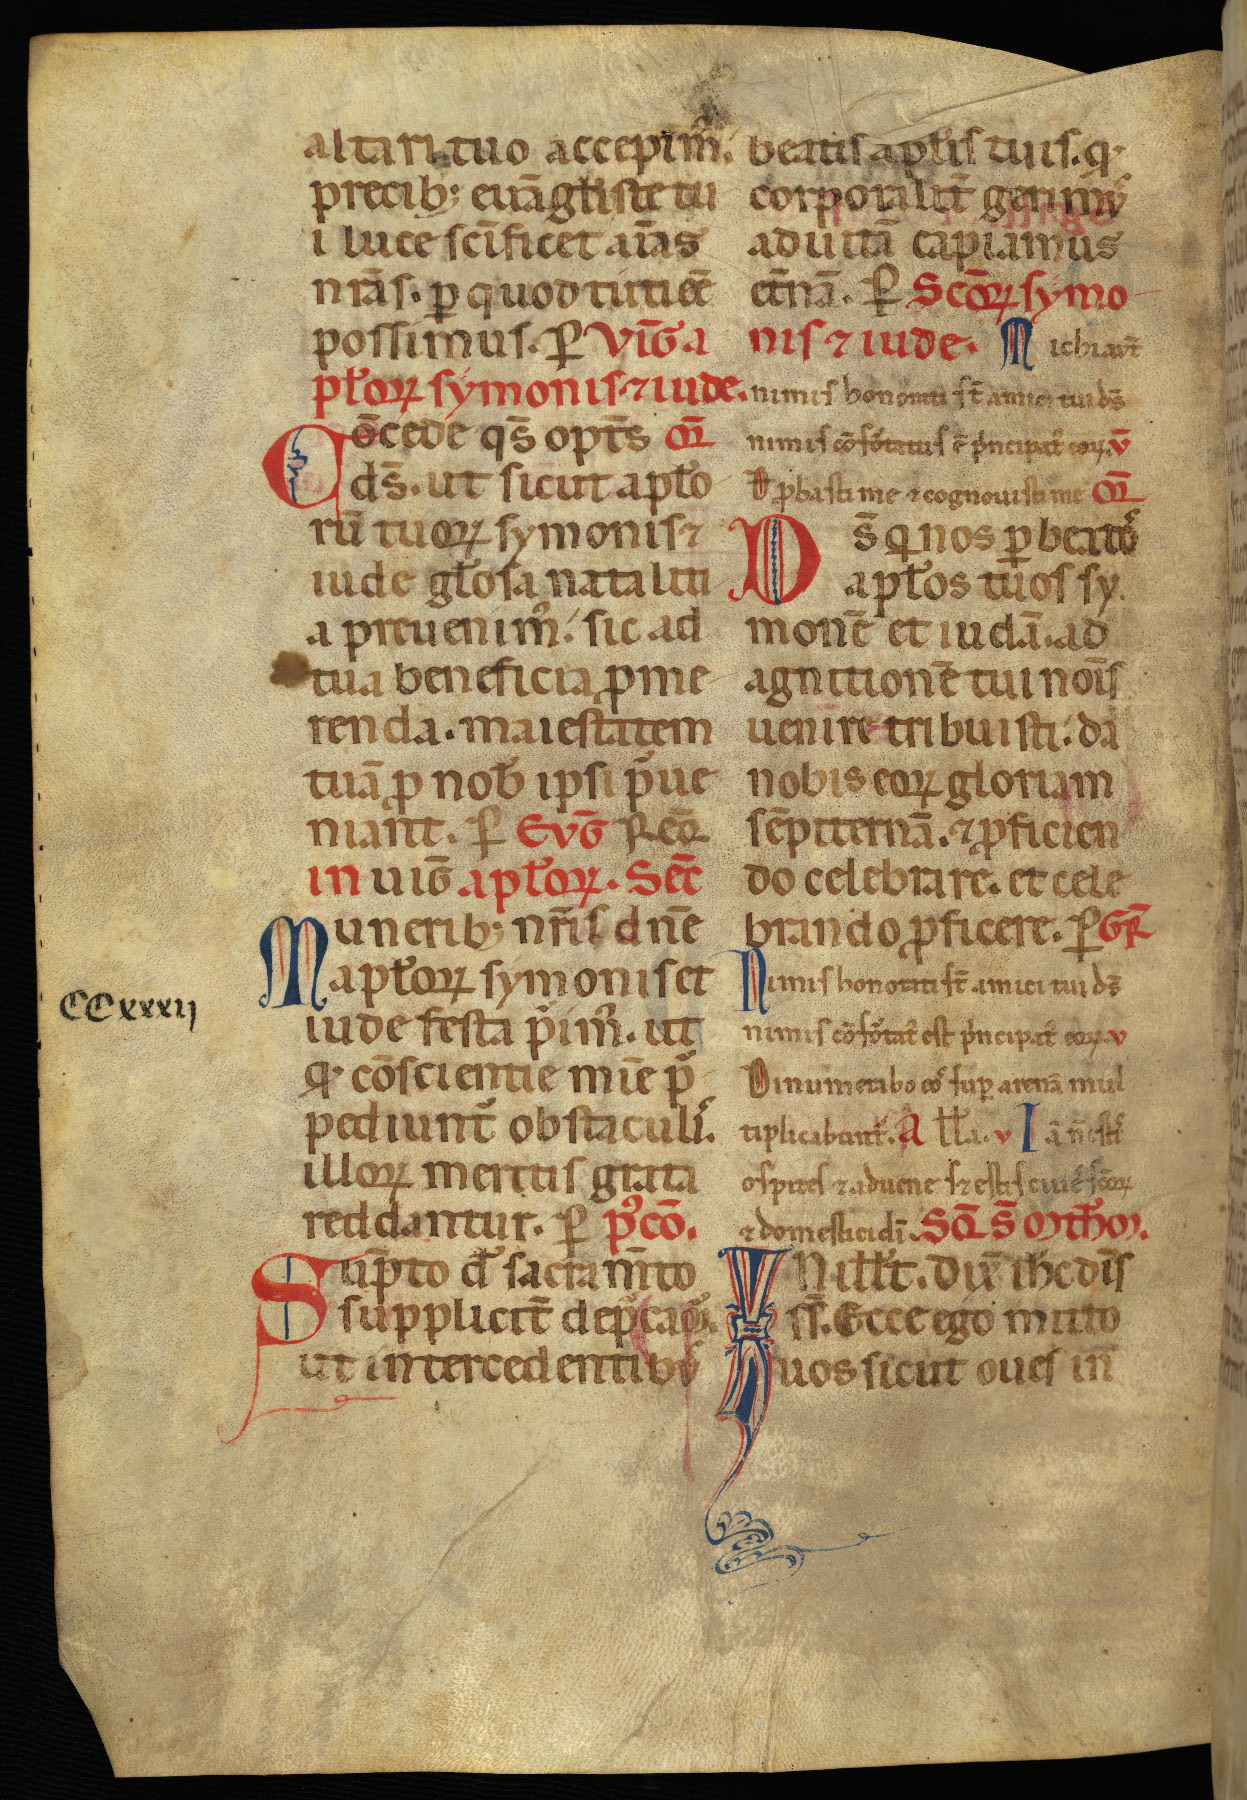 altari tuo accepim᷒.
precib; euāgłiste tu
i luce scīficet aīas
nr̄as. ꝑ quod tuti eē
possimus. ꝑ Viḡ. a
pƚoꝝ symonis ⁊ iude.
Cōcede qs̄ opt̄s or̄
ds̄. ut sicut apƚo
rū tuoꝝ symonis ⁊
iude gƚosa natalici
a preuenim᷒. sic ad
tua beneficia ꝓme
renda. maiestatem
tuā ꝓ nob̄ ipsi p̄ue
niant. ꝑ Euḡ Req̄
in uiḡ apƚoꝝ. Sec̄
Munerib; nr̄is dn̄e
apƚoꝝ symonis et
CCxxxii
iude festa p̄im᷒. ut
q̄ cōscientie nr̄e p̄
pediunt᷑ obstaculis.
illoꝝ meritis grata
reddantur. ꝑ p᷒cō.
Sūpto d̄ sacram̄to
supplicit̄ dep̄cam᷒.
ut intercedentib᷒
beatis apƚis tuis. q̄
corporalit̄ gerim᷒
ad uitā capiamus
et̄nā. ꝑ Sc̄oꝝ symo
nis ⁊ iude. Michi aūt
nimis honorati st̄ amici tui ds̄
nimis cōfortatus ē p̄ncipat᷒ eoꝝ. v̄
D ꝓbasti me ⁊ cognouisti me Or̄
Ds̄ q̄ nos ꝑ beatos
apƚos tuos sy
monē et iudā. ad
agnitionē tui nōis
uenire tribuisti. da
nobis eoꝝ gloriam
sēpiternā. ⁊ ꝓficien
do celebrare. et cele
brando ꝓficere. ꝑ Gr̄
Nimis honorati st̄ amici tui ds̄
nimis cōfortat᷒ est p̄ncipat᷒ eoꝝ. v
Dinumerabo eos sup̄ arenā mul
tiplicabunt᷑. Aƚƚa. v Iā n̄ estis
ospites ⁊ aduene s; estis ciues sc̄oꝝ
⁊ domestici di. Scd̄ s̄ matheū.
IN iƚƚ t̄. Dix̄ ihc̄ dis
s̄. Ecce ego mitto
uos sicut oues in